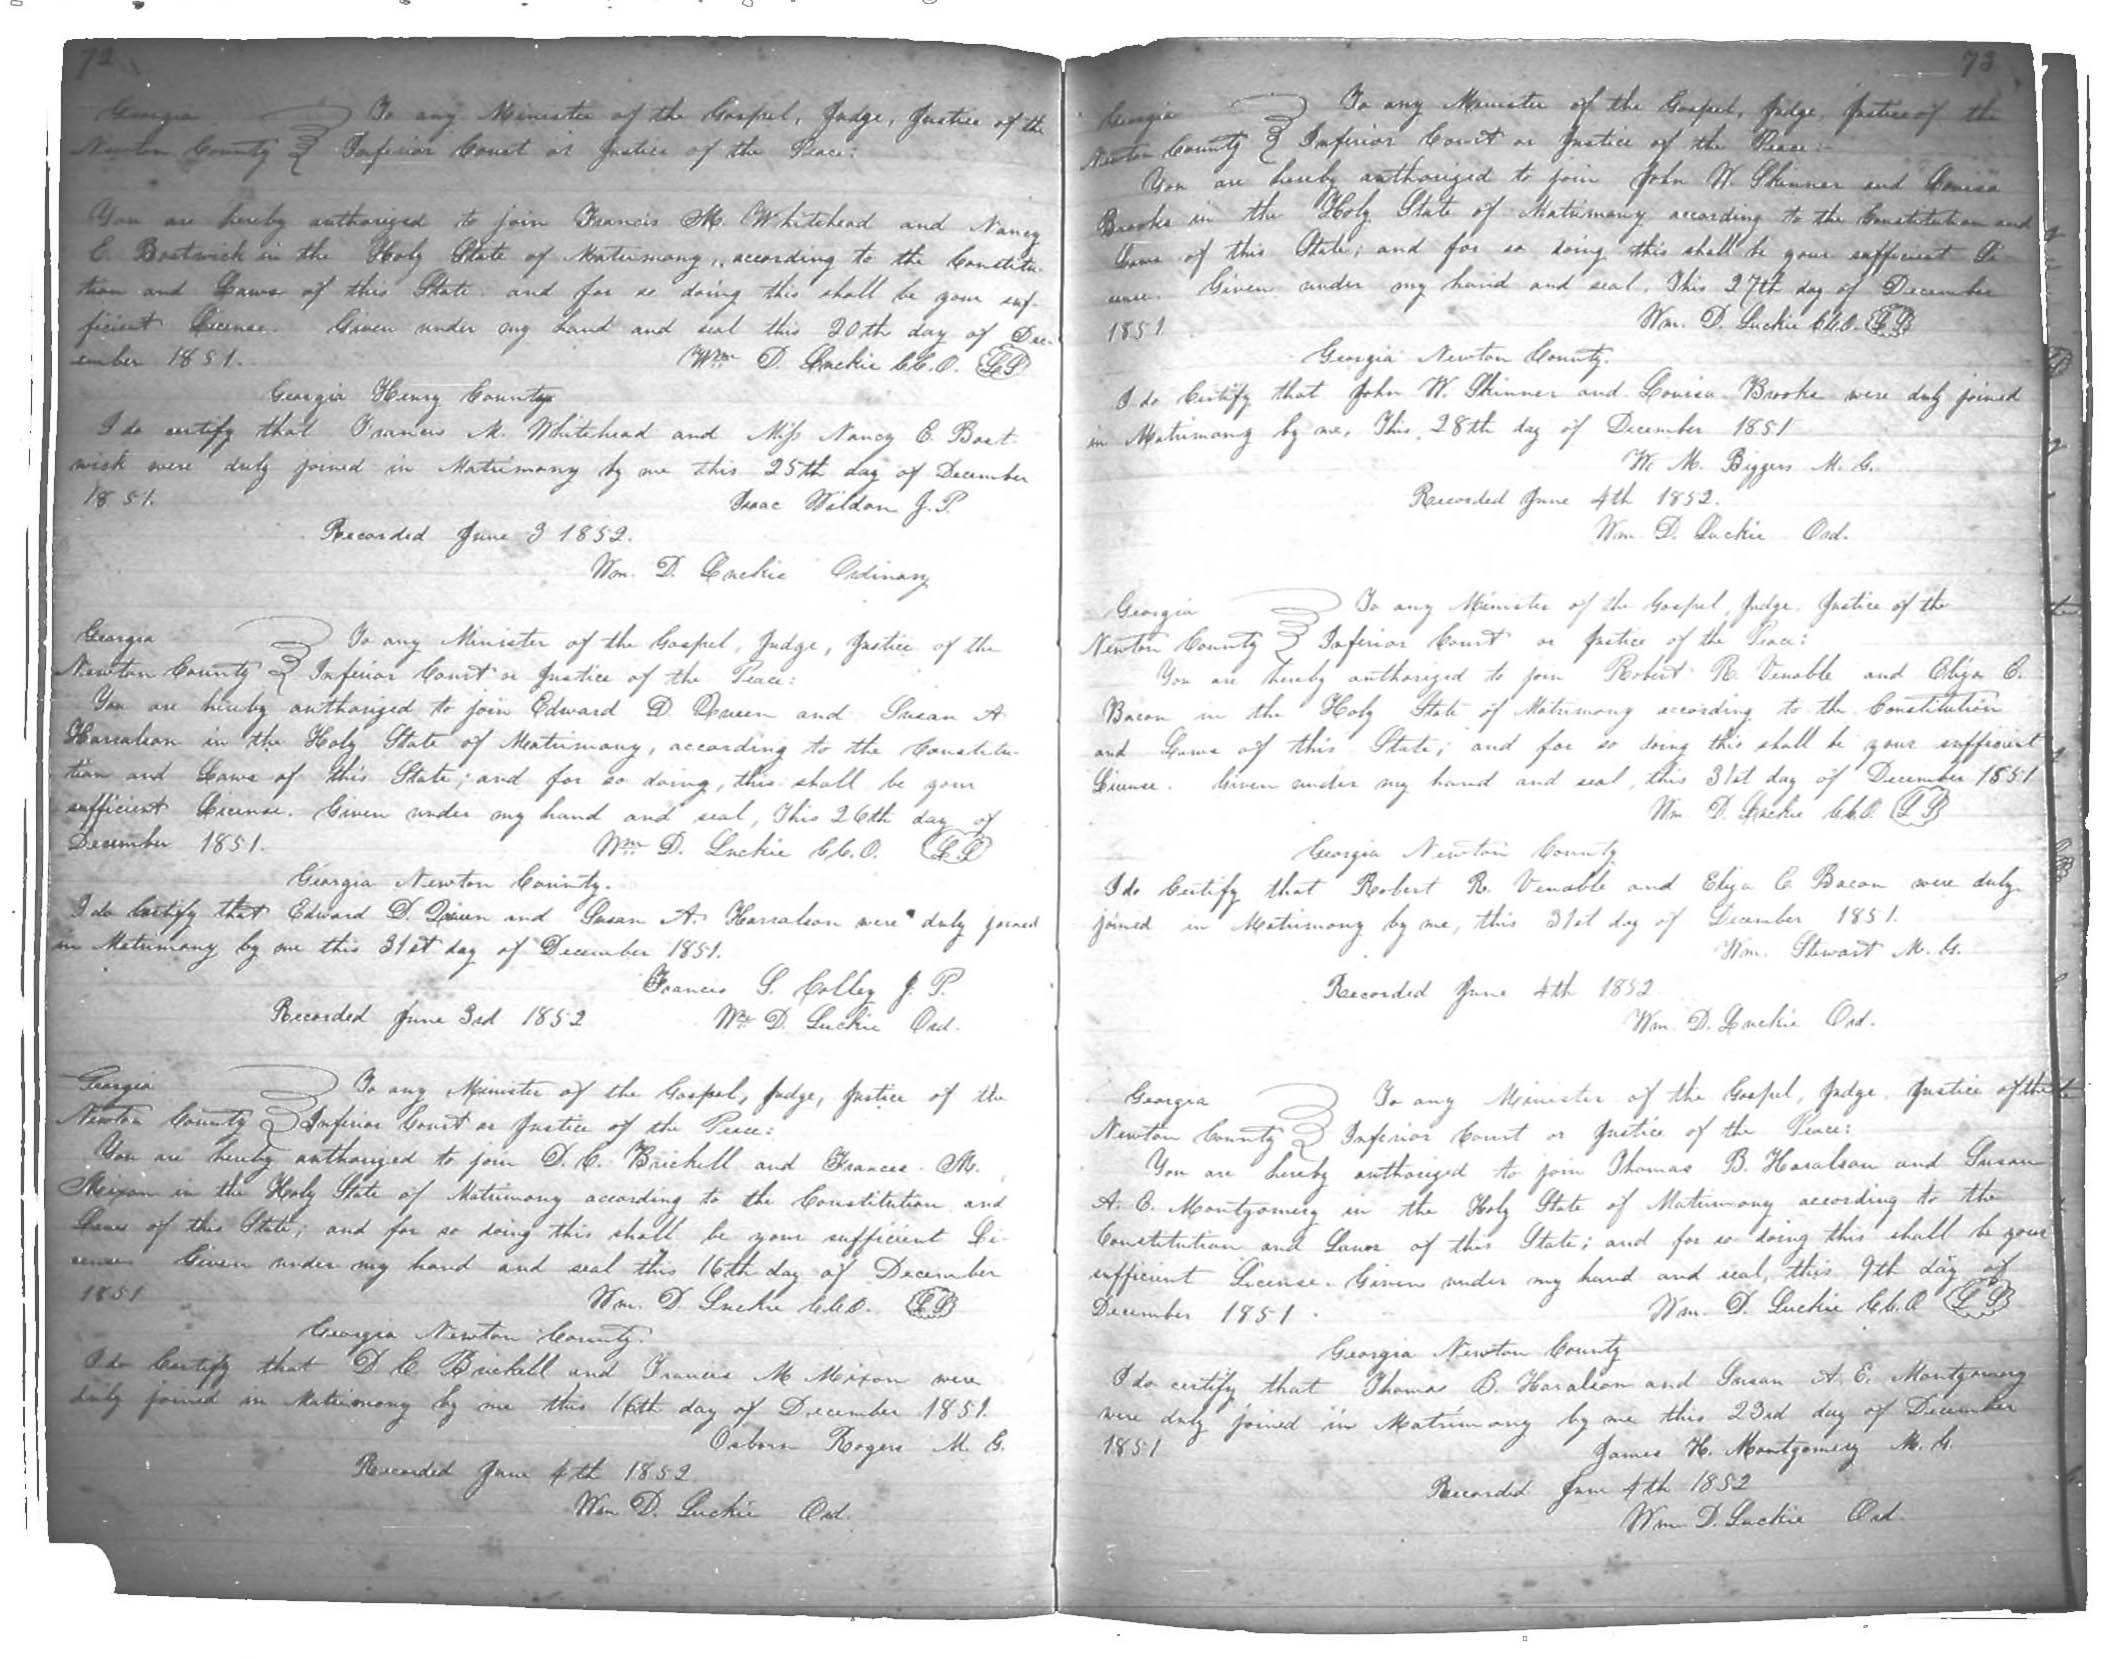 72
Georgia To any Minister of the Gospel, Judge, Justice of the
Newton County Inferior Court or Justice of the Peace:
You are hereby authorized to join Francis M. Whitehead and Nancy
E. Bostwick in the Holy State of Matrimony, according to the Constitu-
tion and Laws of this State and for so doing this shall be your suf-
ficient License. Given under my hand and seal this 20th day of Dec-
ember 1851. Wm D. Luckie C.C.O. LS
Georgia Henry County
I do certify that Francis M. Whitehead and Miss Nancy E. Bost
wick were duly joined in Matrimony by me this 25th day of December
1851. Isaac Weldon J.P.
Recorded June 3 1852.
Wm. D. Luckie Ordinary
Georgia To any Minister of the Gospel, Judge, Justice of the
Newton County Inferior Court or Justice of the Peace:
You are hereby authorized to join Edward D. Queen and Susan A
Harralson in the Holy State of Matrimony, according to the Constitu-
tion and Laws of this State; and for so doing, this shall be your
sufficient License. Given under my hand and seal, This 26th day of
December 1851. Wm D. Luckie C.C.O. LS
Georgia Newton County.
I do Certify that Edward D. Queen and Susan A. Harralson were duly joined
in Matrimony by me this 31st day of December 1851.
Francis S. Colley J. P.
Recorded June 3rd 1852 Wm D. Luckie Ord.
Georgia To any Minister of the Gospel, Judge, Justice of the
Newton County Inferior Court or Justice of the Peace:
You are hereby authorized to join D. C. Brickell and Frances M.
Mixon in the Holy State of Matrimony according to the Constitution and
Laws of this State; and for so doing this shall be your sufficient Li-
cense Given under my hand and seal this 16th day of December
1851 Wm. D. Luckie C.C.O. LS
Georgia Newton County.
I do Certify that D C Brickell and Frances M Mixon were
duly joined in Matrimony by me this 16th day of December 1851.
Osborn Rogers M. G.
Recorded June 4th 1852
Wm D. Luckie Ord.
73
Georgia To any Minister of the Gospel, Judge, Justice of the
Newton County Inferior Court or Justice of the Peace:
You are hereby authorized to join John W. Skinner and Louisa
Brooks in the Holy State of Matrimony according to the Constitution and
Laws of this State; and for so doing this shall be your sufficient Li-
cense. Given under my hand and seal, This 27th day of December
1851 Wm. D. Luckie C.C.O. LS
Georgia Newton County.
I do Certify that John W. Skinner and Louisa Brooks were duly joined
in Matrimony by me, This 28th day of December 1851
W. M. Biggers M. G.
Recorded June 4th 1852.
Wm D. Luckie Ord.
Georgia To any Minister of the Gospel, Judge, Justice of the
Newton County Inferior Court or Justice of the Peace:
You are hereby authorized to join Robert R. Venable and Eliza C.
Bacon in the Holy State of Matrimony according to the Constitution
and Laws of this State; and for so doing this shall be your sufficient
License. Given under my hand and seal, this 31st day of December 1851
Wm D. Luckie C.C.O. LS
Georgia Newton County
I do Certify that Robert R. Venable and Eliza C Bacon were duly
joined in Matrimony by me, this 31st day of December 1851.
Wm. Stewart M. G.
Recorded June 4th 1852
Wm. D. Luckie Ord.
Georgia To any Minister of the Gospel, Judge, Justice of the
Newton County Inferior Court or Justice of the Peace:
You are hereby authorized to join Thomas B. Haralson and Susan
A. E. Montgomery in the Holy State of Matrimony according to the
Constitution and Laws of this State; and for so doing this shall be your
sufficient License. Given under my hand and seal, this 9th day of
December 1851. Wm. D. Luckie C.C.O LS
Georgia Newton County
I do certify that Thomas B. Haralson and Susan A. E. Montgomery
were duly joined in Matrimony by me this 23rd day of December
1851 James H. Montgomery M. G.
Recorded June 4th 1852
Wm D. Luckie Ord.